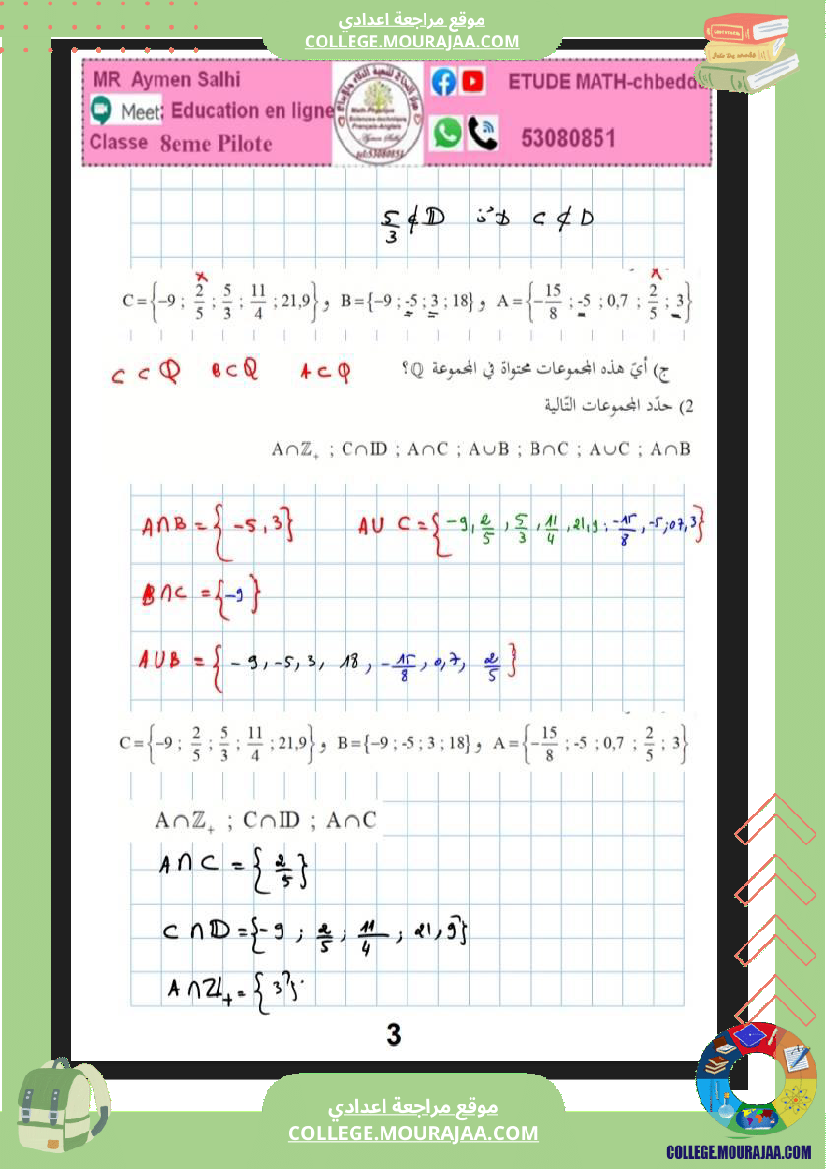 موقع مراجعة اعدادي
COLLEGE.MOURAJAA.COM
MR Aymen Salhi
Meet: Education en ligne
Classe 8eme Pilote
ETUDE MATH-chbedd
53080851
5/3 ∉ ID C ⊄ D
C={-9 ; 2/5 ; 5/3 ; 11/4 ; 21,9} و B={-9 ; -5 ; 3 ; 18} و A={-15/8 ; -5 ; 0,7 ; 2/5 ; 3}
ج) أيّ هذه المجموعات محتواة في المجموعة Q؟ A⊂Q B⊂Q C⊂Q
2) حدّد المجموعات التّالية
A∩ℤ₊ ; C∩ID ; A∩C ; A∪B ; B∩C ; A∪C ; A∩B
A∩B = {-5, 3} A∪C = {-9, 2/5, 5/3, 11/4, 21,9, -15/8, -5; 0,7, 3}
B∩C = {-9}
A∪B = {-9, -5, 3, 18, -15/8, 0,7, 2/5}
C={-9 ; 2/5 ; 5/3 ; 11/4 ; 21,9} و B={-9 ; -5 ; 3 ; 18} و A={-15/8 ; -5 ; 0,7 ; 2/5 ; 3}
A∩ℤ₊ ; C∩ID ; A∩C
A∩C = {2/5}
C∩ID = {-9 ; 2/5 ; 11/4 ; 21,9}
A∩ℤ₊ = {3}
3
موقع مراجعة اعدادي
COLLEGE.MOURAJAA.COM
COLLEGE.MOURAJAA.COM